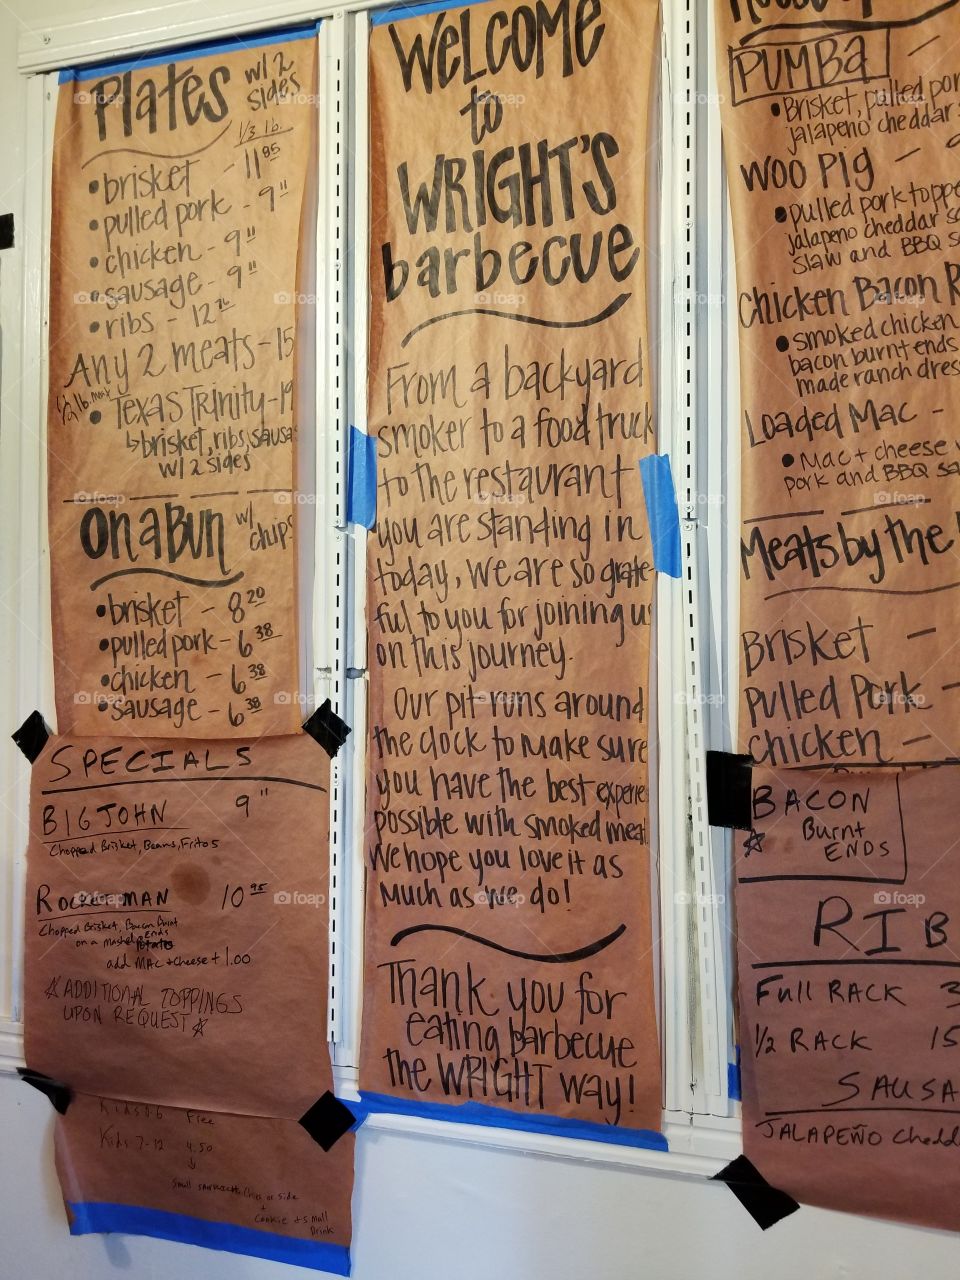 Plates w/ 2 sides
1/3 lb.
• brisket - 11 85
• pulled pork - 9 11
• chicken - 9 11
• sausage - 9 11
• ribs - 12
Any 2 meats - 15
1/2 lb. meat
• Texas Trinity - 19
↳ brisket, ribs, sausa
w/ 2 sides
On a Bun w/ chips
• brisket - 8 20
• pulled pork - 6 38
• chicken - 6 38
• sausage - 6 38
SPECIALS
BIG JOHN 9 11
Chopped Brisket, Beans, Fritos
ROCKETMAN 10 95
Chopped Brisket, Bacon Burnt Ends
on a mashed potato
add MAC + Cheese + 1.00
☆ ADDITIONAL TOPPINGS
UPON REQUEST ☆
Kids 0-6 Free
Kids 7-12 4.50
Small sandwich, Chips or side
+
Cookie + small
Drink
WELCOME
to
WRIGHT'S
barbecue
From a backyard
smoker to a food truck
to the restaurant
you are standing in
today, we are so grate-
ful to you for joining us
on this journey.
Our pit runs around
the clock to make sure
you have the best experie
possible with smoked meat.
We hope you love it as
much as we do!
Thank you for
eating barbecue
the WRIGHT way!
PUMBA -
• Brisket, pulled por
jalapeño cheddar s
WOO PIG - 9
• pulled pork toppe
jalapeño cheddar s
slaw and BBQ sa
Chicken Bacon R
• smoked chicken
bacon burnt ends
made ranch dres
Loaded Mac -
• Mac + cheese w
pork and BBQ sa
Meats by the
Brisket -
Pulled Pork -
chicken -
BACON
☆ Burnt
ENDS
RIB
Full RACK 3
1/2 RACK 15
SAUSA
JALAPEÑO chedd